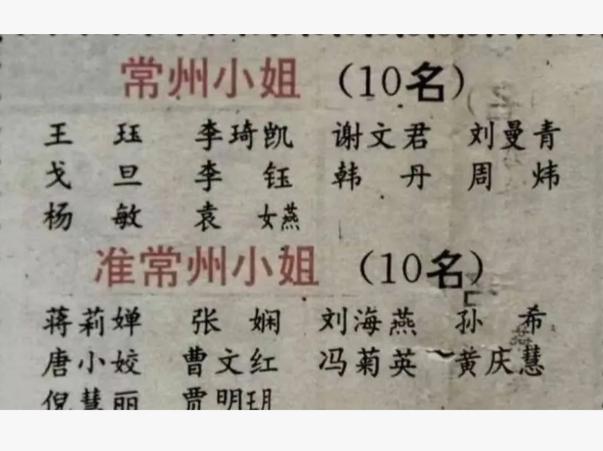 常州小姐 (10名)
王 珏 李琦凯 谢文君 刘曼青
戈 旦 李 钰 韩 丹 周 炜
杨 敏 袁 嬿
准常州小姐 (10名)
蒋莉婵 张 娴 刘海燕 孙 希
唐小姣 曹文红 冯菊英 黄庆慧
倪慧丽 贾明玥